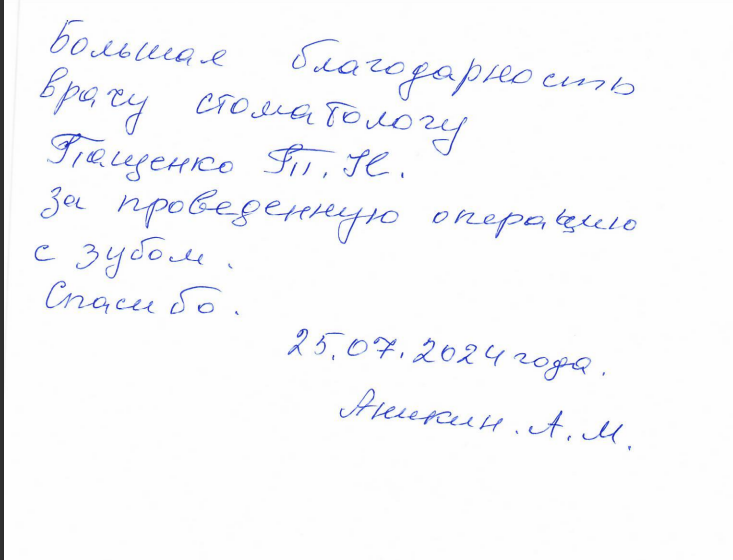 Большая благодарность
врачу стоматологу
Пащенко П. Н.
за проведенную операцию
с зубом.
Спасибо.
25.07.2024 года.
Аникин. А. М.